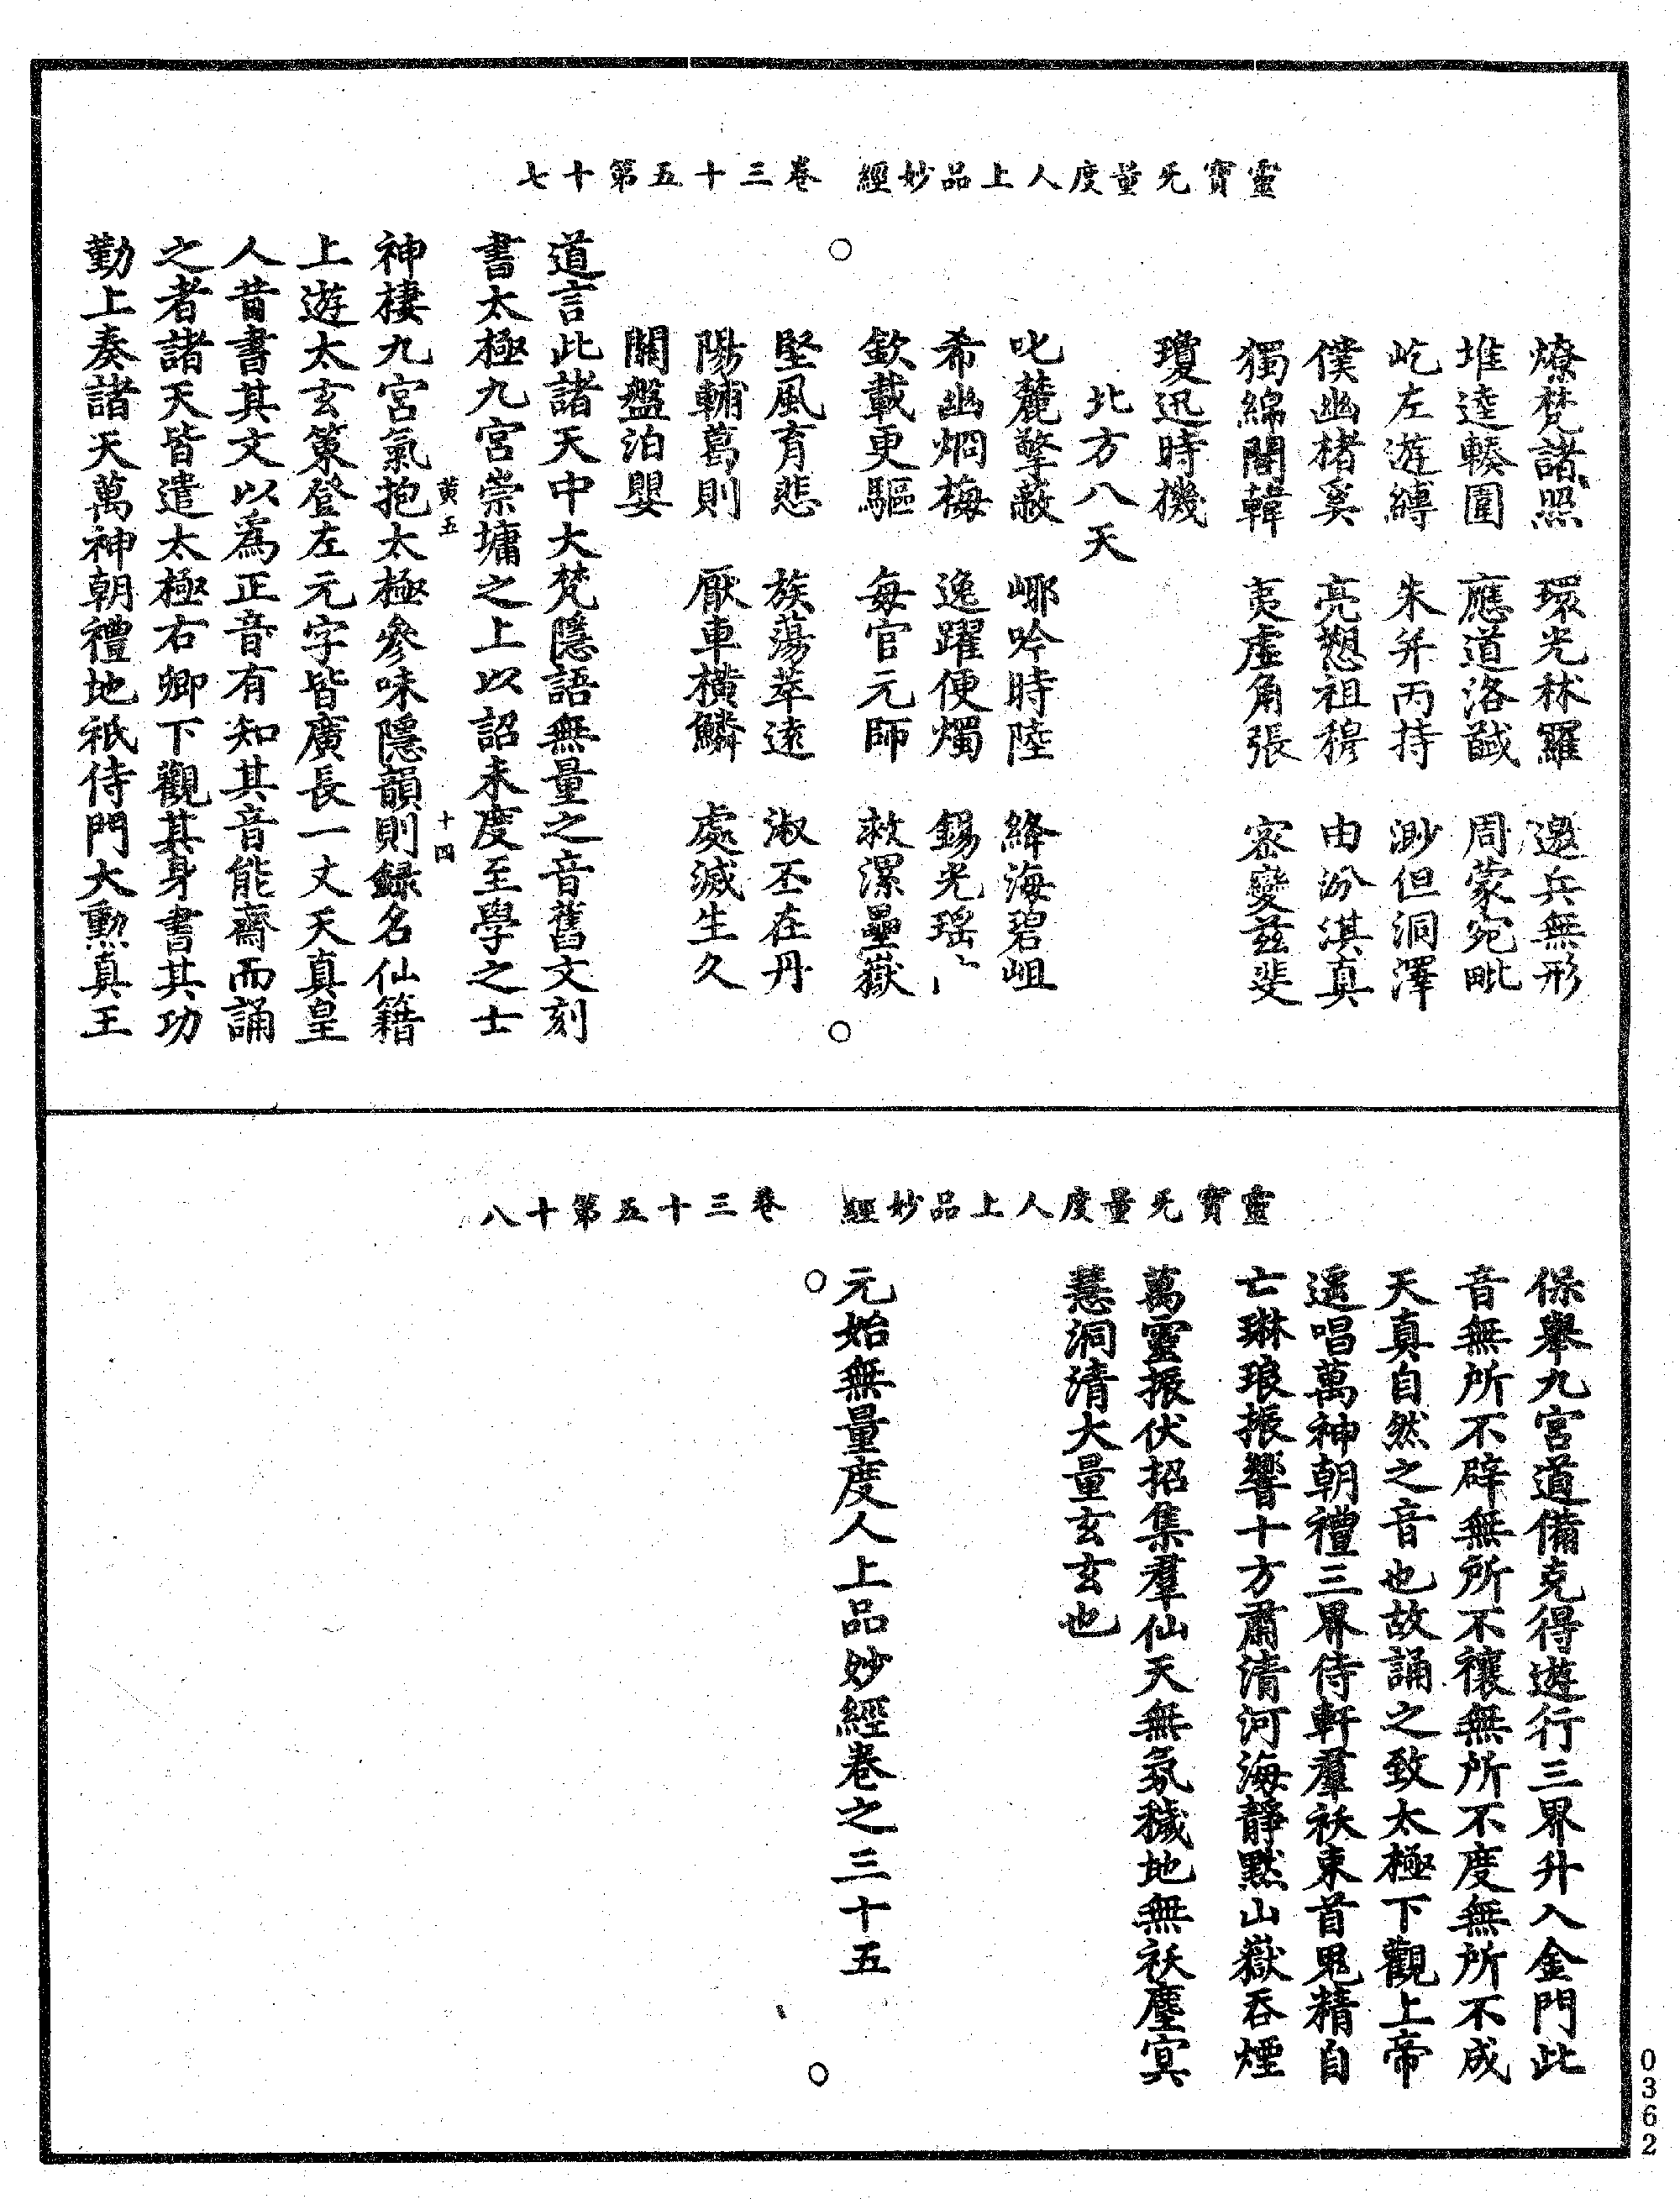 靈寶无量度人上品妙經 卷三十五第十七
燎梵諸照 環光林羅 邀兵無形
堆逵輳圍 應道洛馘 周蒙宛毗
屹左遊縛 朱并丙持 渺但洞澤
僕幽楮奚 亮愬祖穆 由汾淇真
獨綿闇韓 夷虛角張 密變茲斐
瓊迅時機
北方八天
叱麓擎蔽 哪吟時陸 絳海碧岨
希幽烱梅 逸躍便燭 錫光瑤
欽載更驅 每官元師 救漯壘嶽
堅風育悲 族蕩萃遠 淑丕在丹
陽輔葛則 厭車橫鱗 處滅生久
關盤泊嬰
道言此諸天中大梵隱語無量之音舊文刻
書太極九宮崇墉之上以詔末度至學之士
黃五 十四
神棲九宮氣抱太極參味隱韻則錄名仙籍
上遊太玄策登左元字皆廣長一丈天真皇
人昔書其文以為正音有知其音能齋而誦
之者諸天皆遣太極右卿下觀其身書其功
勤上奏諸天萬神朝禮地祇侍門大勳真王
靈寶无量度人上品妙經 卷三十五第十八
保舉九宮道備克得遊行三界升入金門此
音無所不辟無所不禳無所不度無所不成
天真自然之音也故誦之致太極下觀上帝
遥唱萬神朝禮三界侍軒羣袄束首鬼精自
亡琳琅振響十方肅清河海靜默山嶽吞煙
萬靈振伏招集羣仙天無氛穢地無袄塵冥
慧洞清大量玄玄也
元始無量度人上品妙經卷之三十五
0362